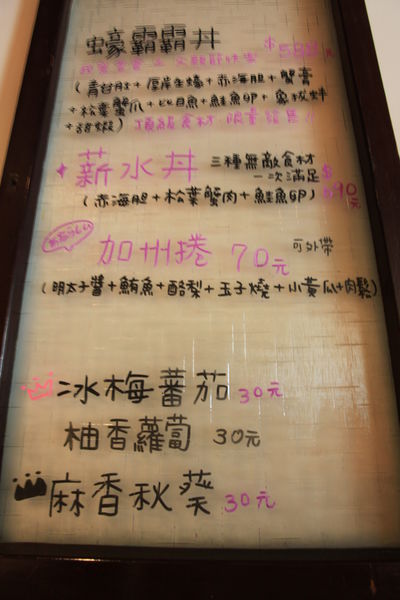 蠔霸霸丼 $588元
(青甘魽+厚岸生蠔+赤海胆+蟹膏
+松葉蟹爪+比目魚+鮭魚卵+象拔蚌
+甜蝦) 頂級食材 限量
薪水丼 三種無敵食材
一次滿足 $
(赤海胆+松葉蟹肉+鮭魚卵) 90元
加州捲 70元 可外帶
(明太子醬+鮪魚+酪梨+玉子燒+小黃瓜+肉鬆)
冰梅蕃茄 30元
柚香蘿蔔 30元
麻香秋葵 30元